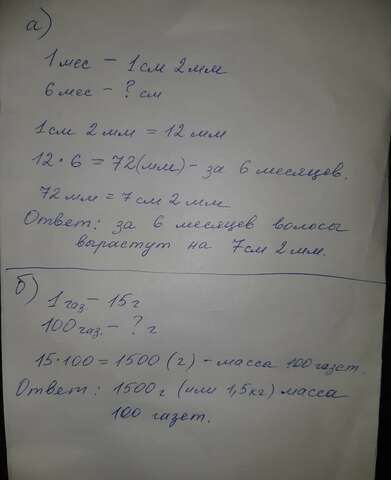 а)
1 мес - 1 см 2 мм
6 мес - ? см
1 см 2 мм = 12 мм
12 · 6 = 72 (мм) - за 6 месяцов.
72 мм = 7 см 2 мм
Ответ: за 6 месяцев волосы
вырастут на 7 см 2 мм.
б)
1 газ. - 15 г
100 газ. - ? г
15 · 100 = 1500 (г) - масса 100 газет.
Ответ: 1500 г (или 1,5 кг) масса
100 газет.